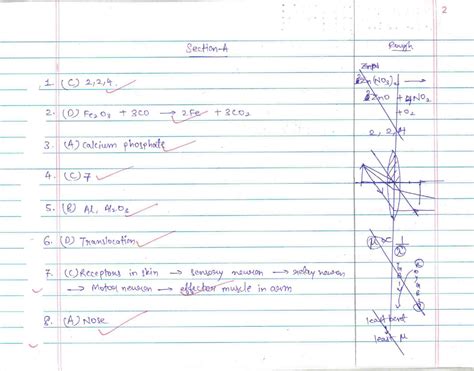 2
Section-A
Rough
1. (C) 2,2,4.
2. (D) Fe₂O₃ + 3CO → 2Fe + 3CO₂
3. (A) Calcium phosphate
4. (C) 7
5. (B) Al, Al₂O₃
6. (D) Translocation
7. (C) Receptors in skin → sensory neuron → relay neuron
→ Motor neuron → effector muscle in arm
8. (A) Nose
Zn(NO₃)₂ →
2ZnO + 4NO₂
+ O₂
2, 2, 4
μ ∝ 1/λ
least bent
least μ